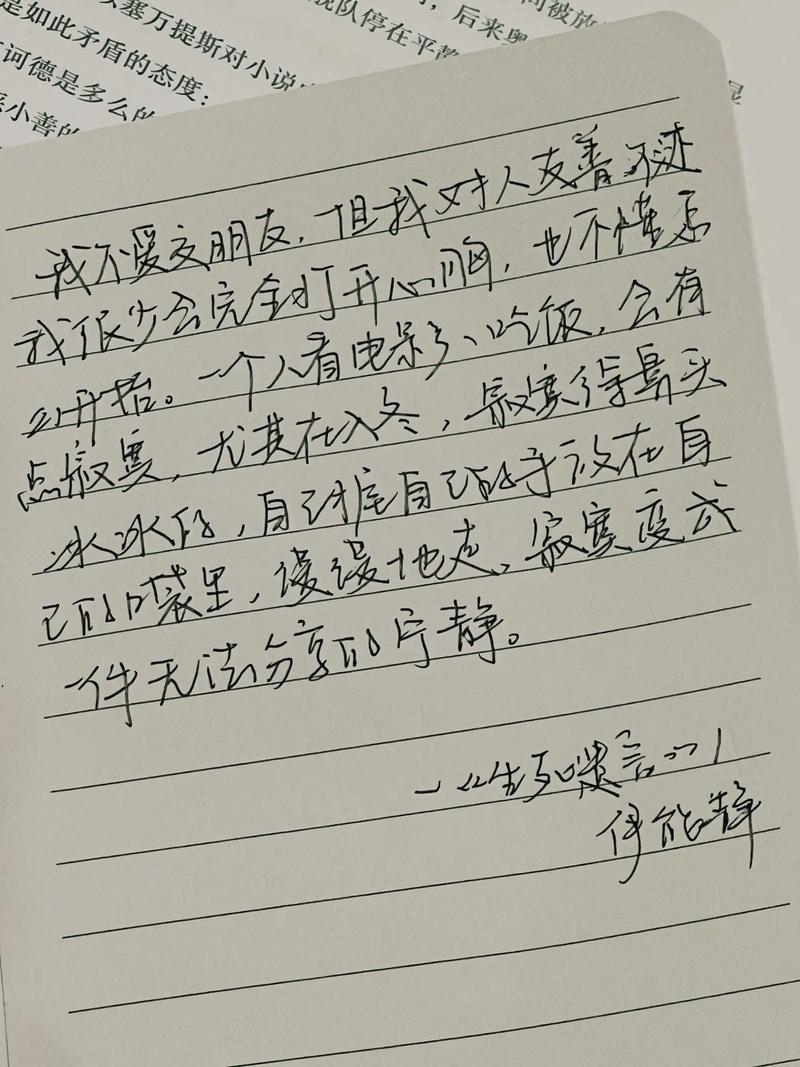 塞万提斯对小说
队停在平静
后来奥
是如此矛盾的态度：
诃德是多么的
小善的
我不爱交朋友，但我对人友善不过
我很少会完全打开心胸，也不懂怎
么开始。一个人看电影、吃饭，会有
点寂寞，尤其在入冬，寂寞得鼻头
冰冰的，自己把自己的手放在自
己的口袋里，慢慢地走，寂寞变成
一件无法分享的宁静。
—《生死遗言》
伊能静